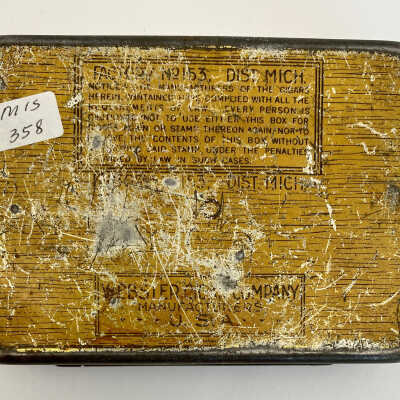 FACTORY No 153. DIST. MICH.
NOTICE. THE MANUFACTURERS OF THE CIGARS
HEREIN CONTAINED HAVE COMPLIED WITH ALL THE
REQUIREMENTS OF LAW. EVERY PERSON IS
CAUTIONED NOT TO USE EITHER THIS BOX FOR
CIGARS AGAIN OR STAMP THEREON AGAIN, NOR TO
REMOVE THE CONTENTS OF THIS BOX WITHOUT
SAID STAMP UNDER THE PENALTIES
PROVIDED BY LAW IN SUCH CASES.
MIS
358
DIST. MICH.
WEBSTER COMPANY
MANUFACTURERS
U.S.A.